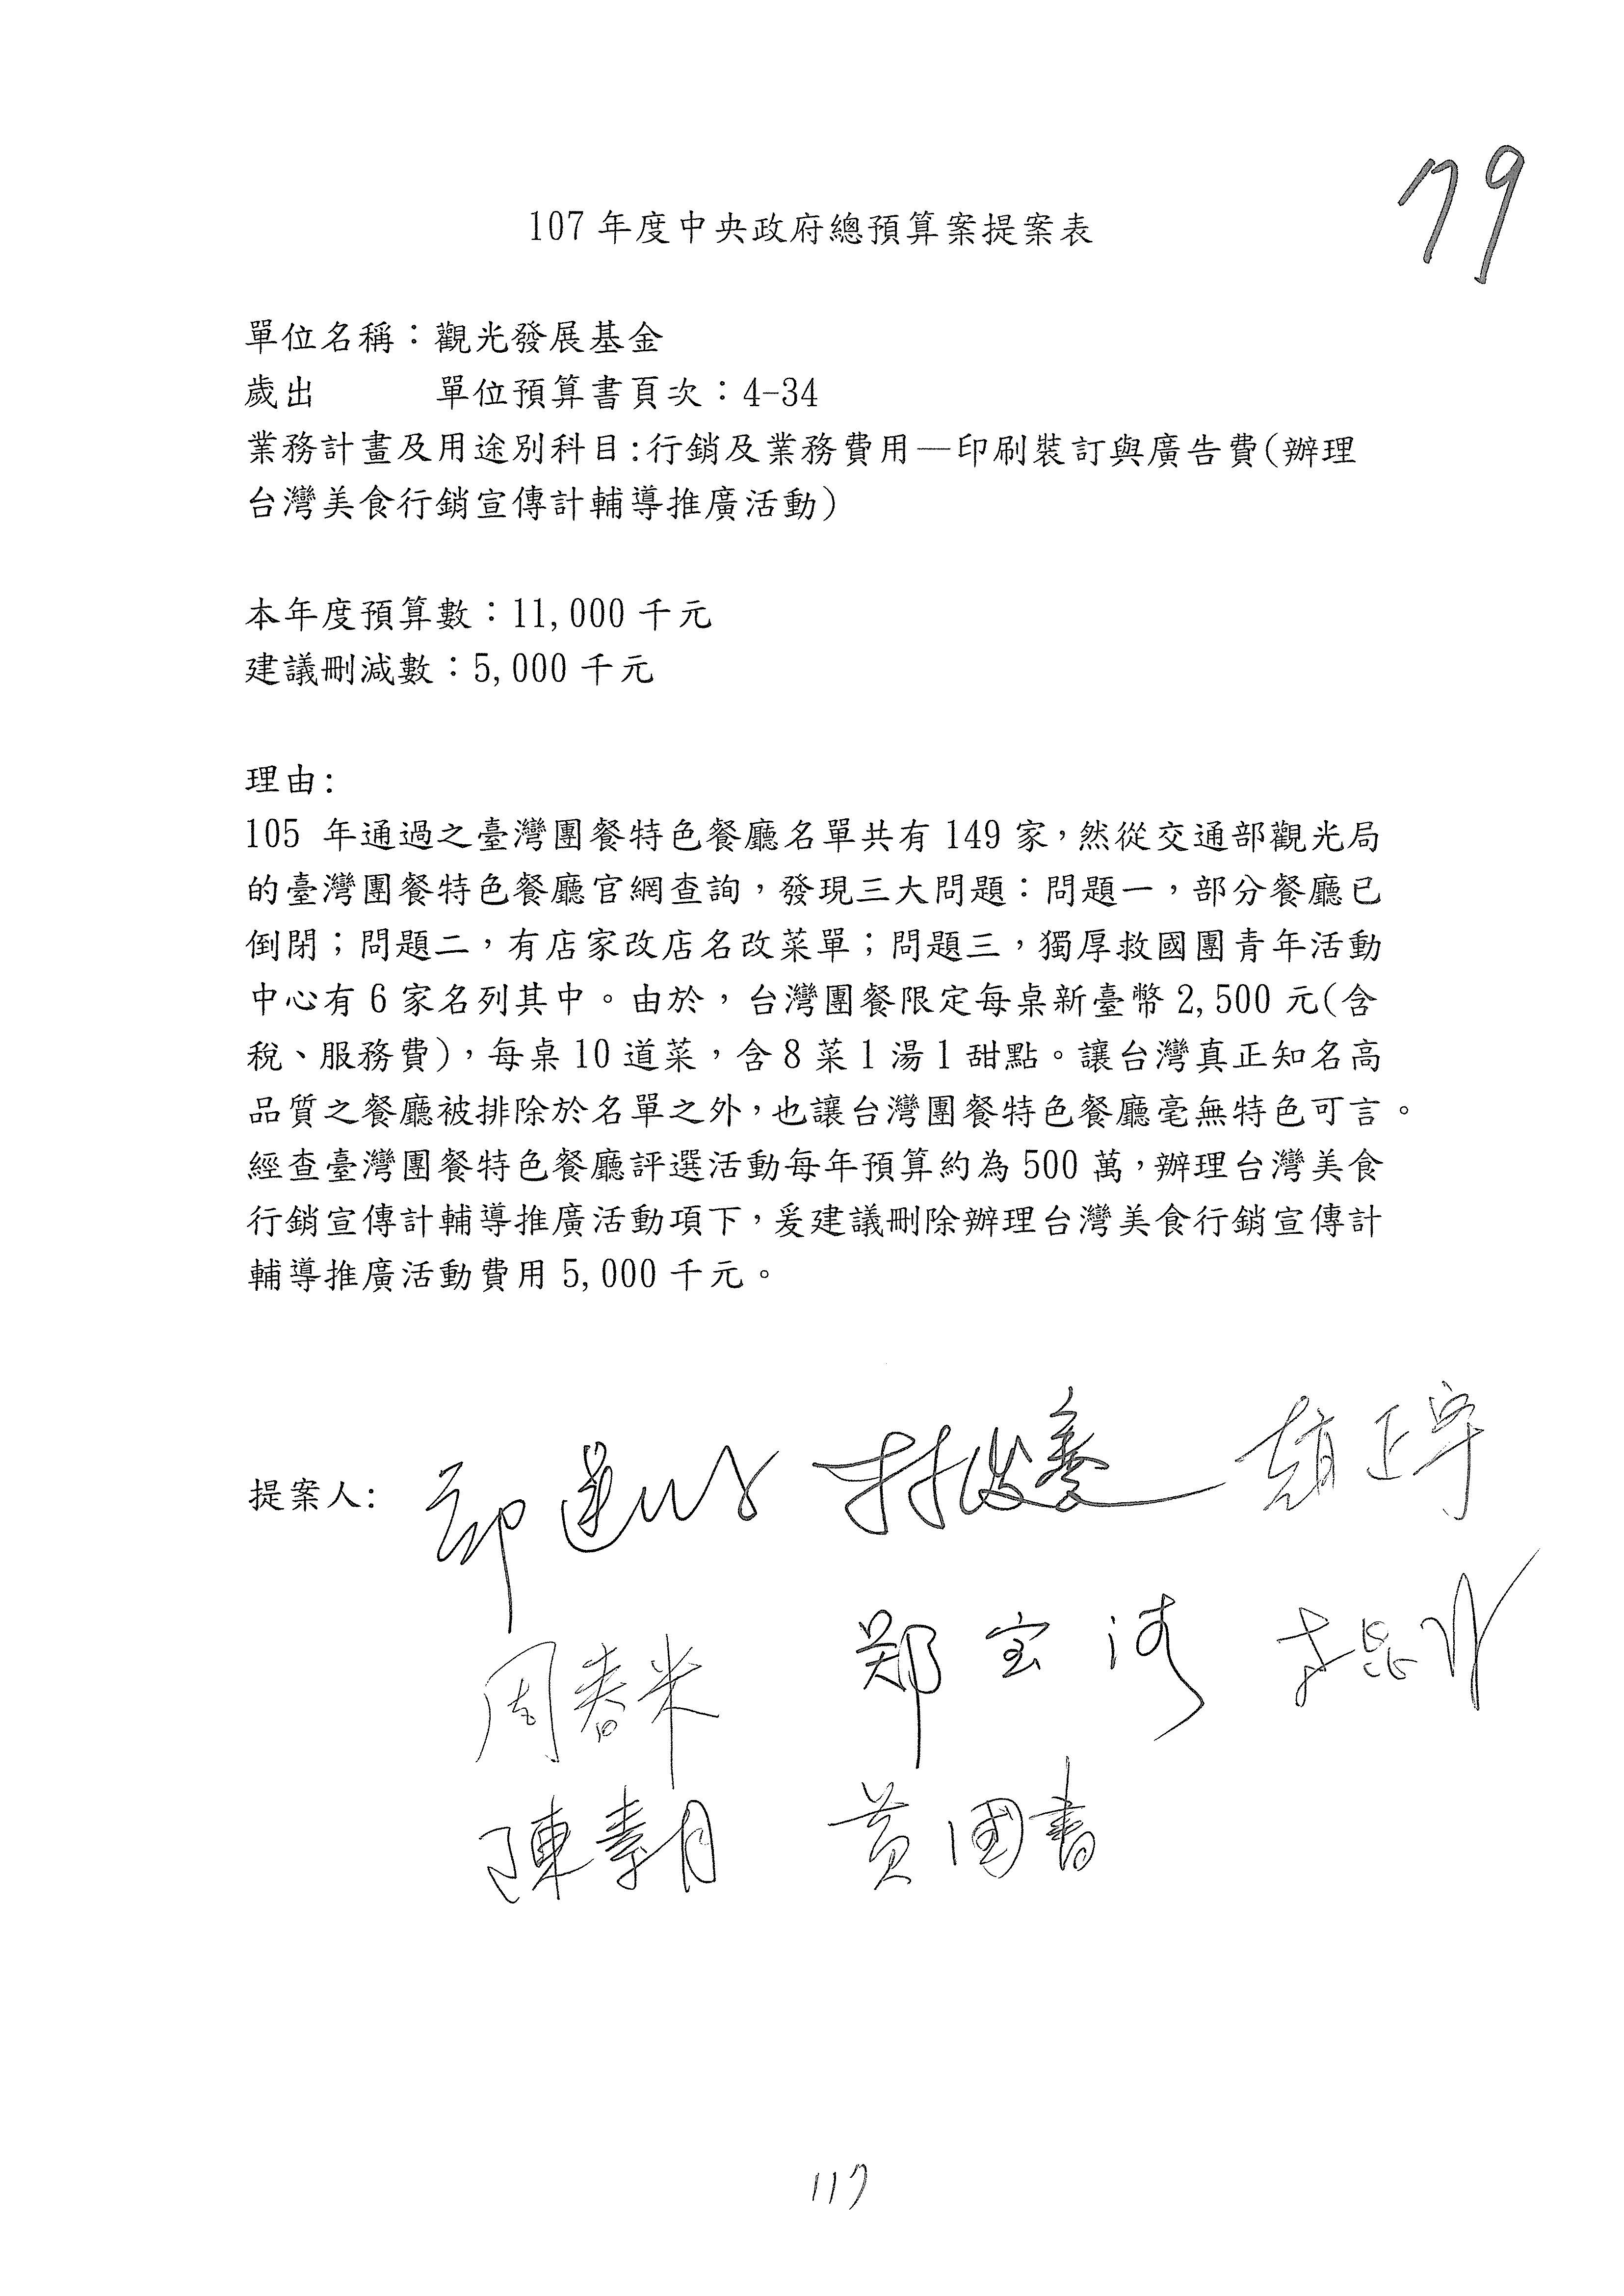 79
107 年度中央政府總預算案提案表
單位名稱：觀光發展基金
歲出 單位預算書頁次：4-34
業務計畫及用途別科目:行銷及業務費用—印刷裝訂與廣告費(辦理
台灣美食行銷宣傳計輔導推廣活動)
本年度預算數：11,000 千元
建議刪減數：5,000 千元
理由:
105 年通過之臺灣團餐特色餐廳名單共有 149 家，然從交通部觀光局
的臺灣團餐特色餐廳官網查詢，發現三大問題：問題一，部分餐廳已
倒閉；問題二，有店家改店名改菜單；問題三，獨厚救國團青年活動
中心有 6 家名列其中。由於，台灣團餐限定每桌新臺幣 2,500 元(含
稅、服務費)，每桌 10 道菜，含 8 菜 1 湯 1 甜點。讓台灣真正知名高
品質之餐廳被排除於名單之外，也讓台灣團餐特色餐廳毫無特色可言。
經查臺灣團餐特色餐廳評選活動每年預算約為 500 萬，辦理台灣美食
行銷宣傳計輔導推廣活動項下，爰建議刪除辦理台灣美食行銷宣傳計
輔導推廣活動費用 5,000 千元。
提案人: 林俊憲 趙正宇
周春米 鄭宝清
陳素月 黃國書
117